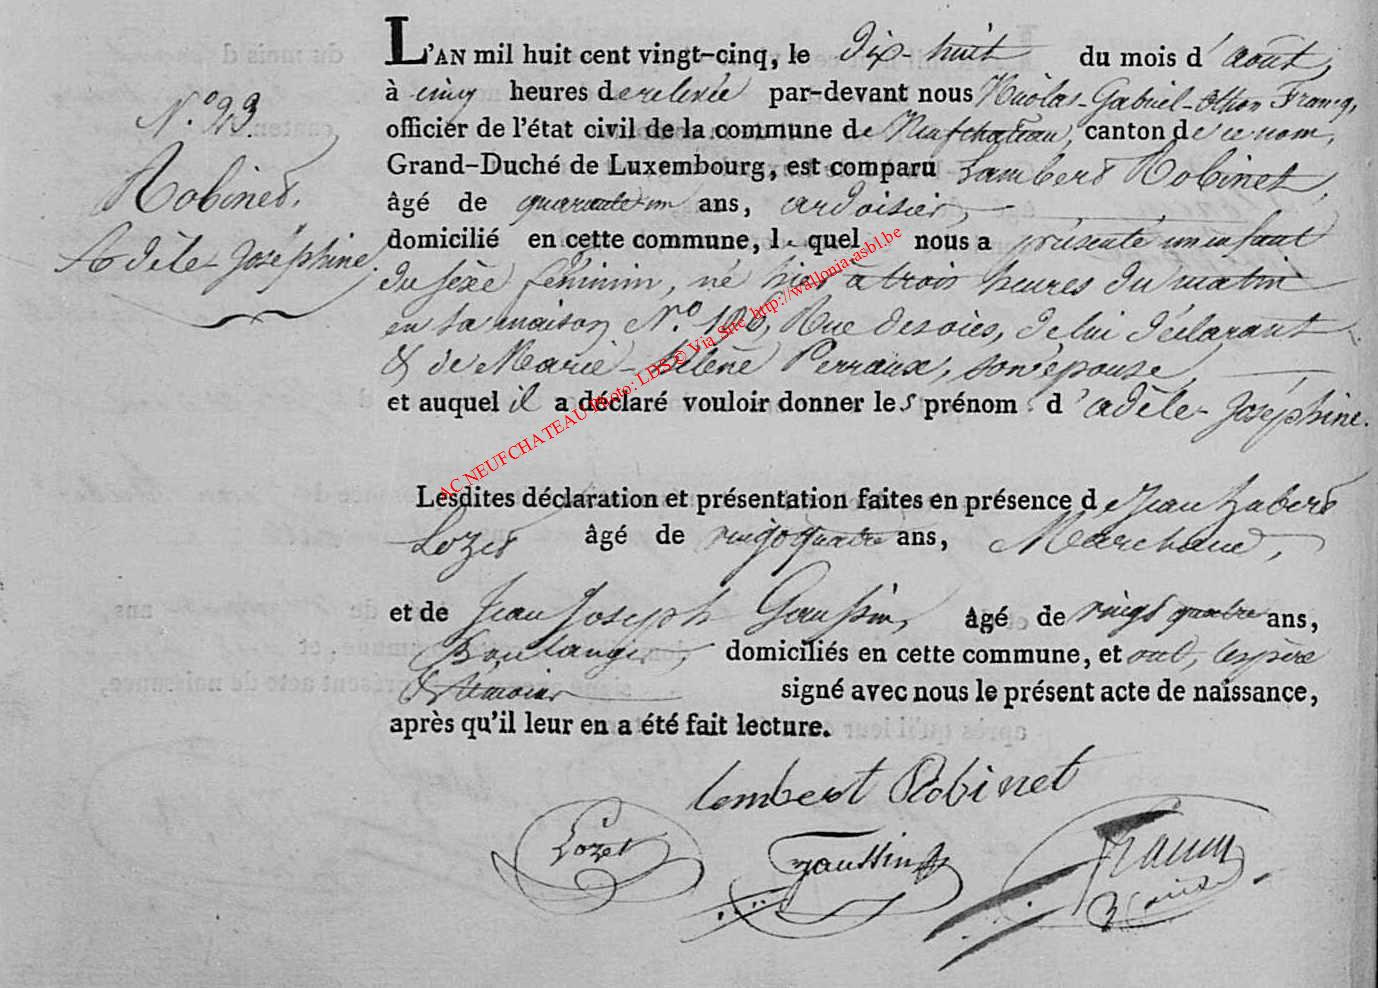 N.° 23.
Robinet,
Adèle-Joséphine.
L'AN mil huit cent vingt-cinq, le dix-huit du mois d'août,
à cinq heures de relevée par-devant nous Nicolas-Gabriel-Othon Francq,
officier de l'état civil de la commune de Neufchateau, canton de ce nom,
Grand-Duché de Luxembourg, est comparu Lambert Robinet,
âgé de quarante un ans, ardoisier,
domicilié en cette commune, lequel nous a présenté un enfant
du sexe féminin, né hier à trois heures du matin
en sa maison N.° 106, Rue des oies, de lui déclarant
& de Marie-Hélène Perraux, son épouse,
et auquel il a déclaré vouloir donner les prénom s d'adèle-Joséphine.
Lesdites déclaration et présentation faites en présence de Jean Hubert
Lozet âgé de vingt quatre ans, Marchand,
et de Jean Joseph Gaussin, âgé de vingt quatre ans,
Boulanger, domiciliés en cette commune, et ont, les père
& témoins signé avec nous le présent acte de naissance,
après qu'il leur en a été fait lecture.
lambert Robinet
Lozet
gaussin
Francq
AC NEUFCHATEAU Photo: LDS © Via Site http://wallonia-asbl.be